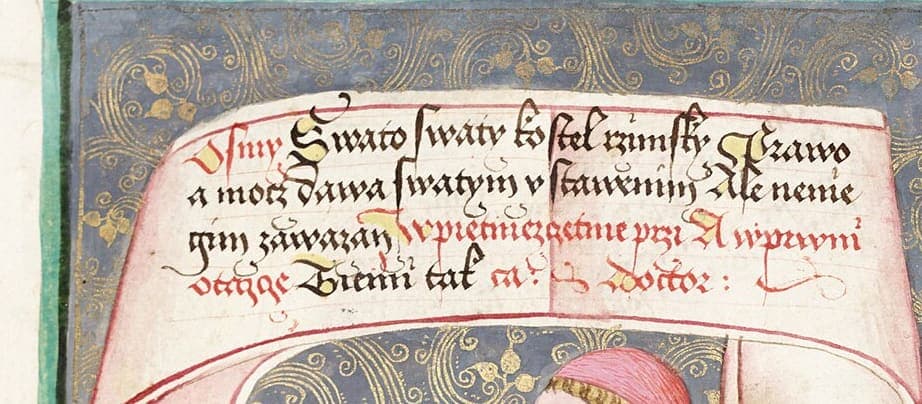 Osmy Swato swaty kostel rzimsky Prawo
a mocz dawa swatym vstawenim Ale nenie
gim zawazan W pietmezcietme przi A w prwni
otczge Tiemi tak ca? Doctor :